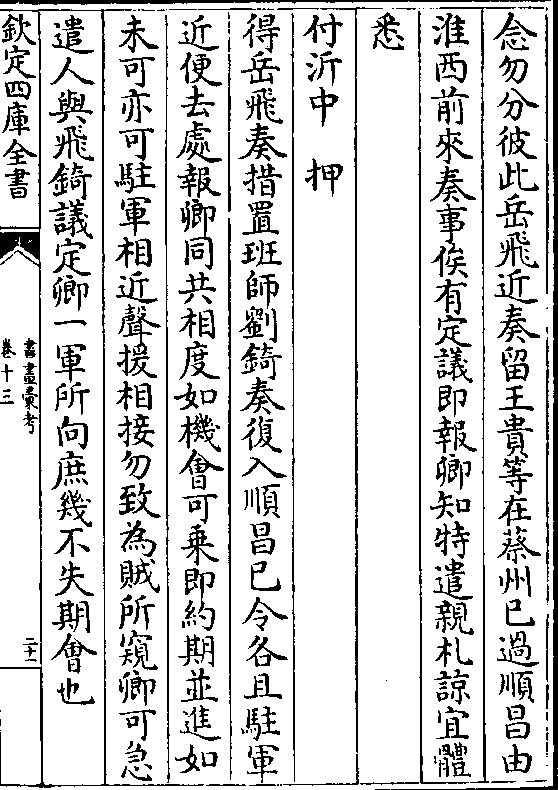 念勿分彼此岳飛近奏留王貴等在蔡州已過順昌由
淮西前來奏事俟有定議即報卿知特遣親札諒宜體
悉
付沂中　押
得岳飛奏措置班師劉錡奏復入順昌已令各且駐軍
近便去處報卿同共相度如機會可乘即約期並進如
未可亦可駐軍相近聲援相接勿致為賊所窺卿可急
遣人與飛錡議定卿一軍所向庶幾不失期會也
欽定四庫全書
書畫彙考
卷十三
二十一